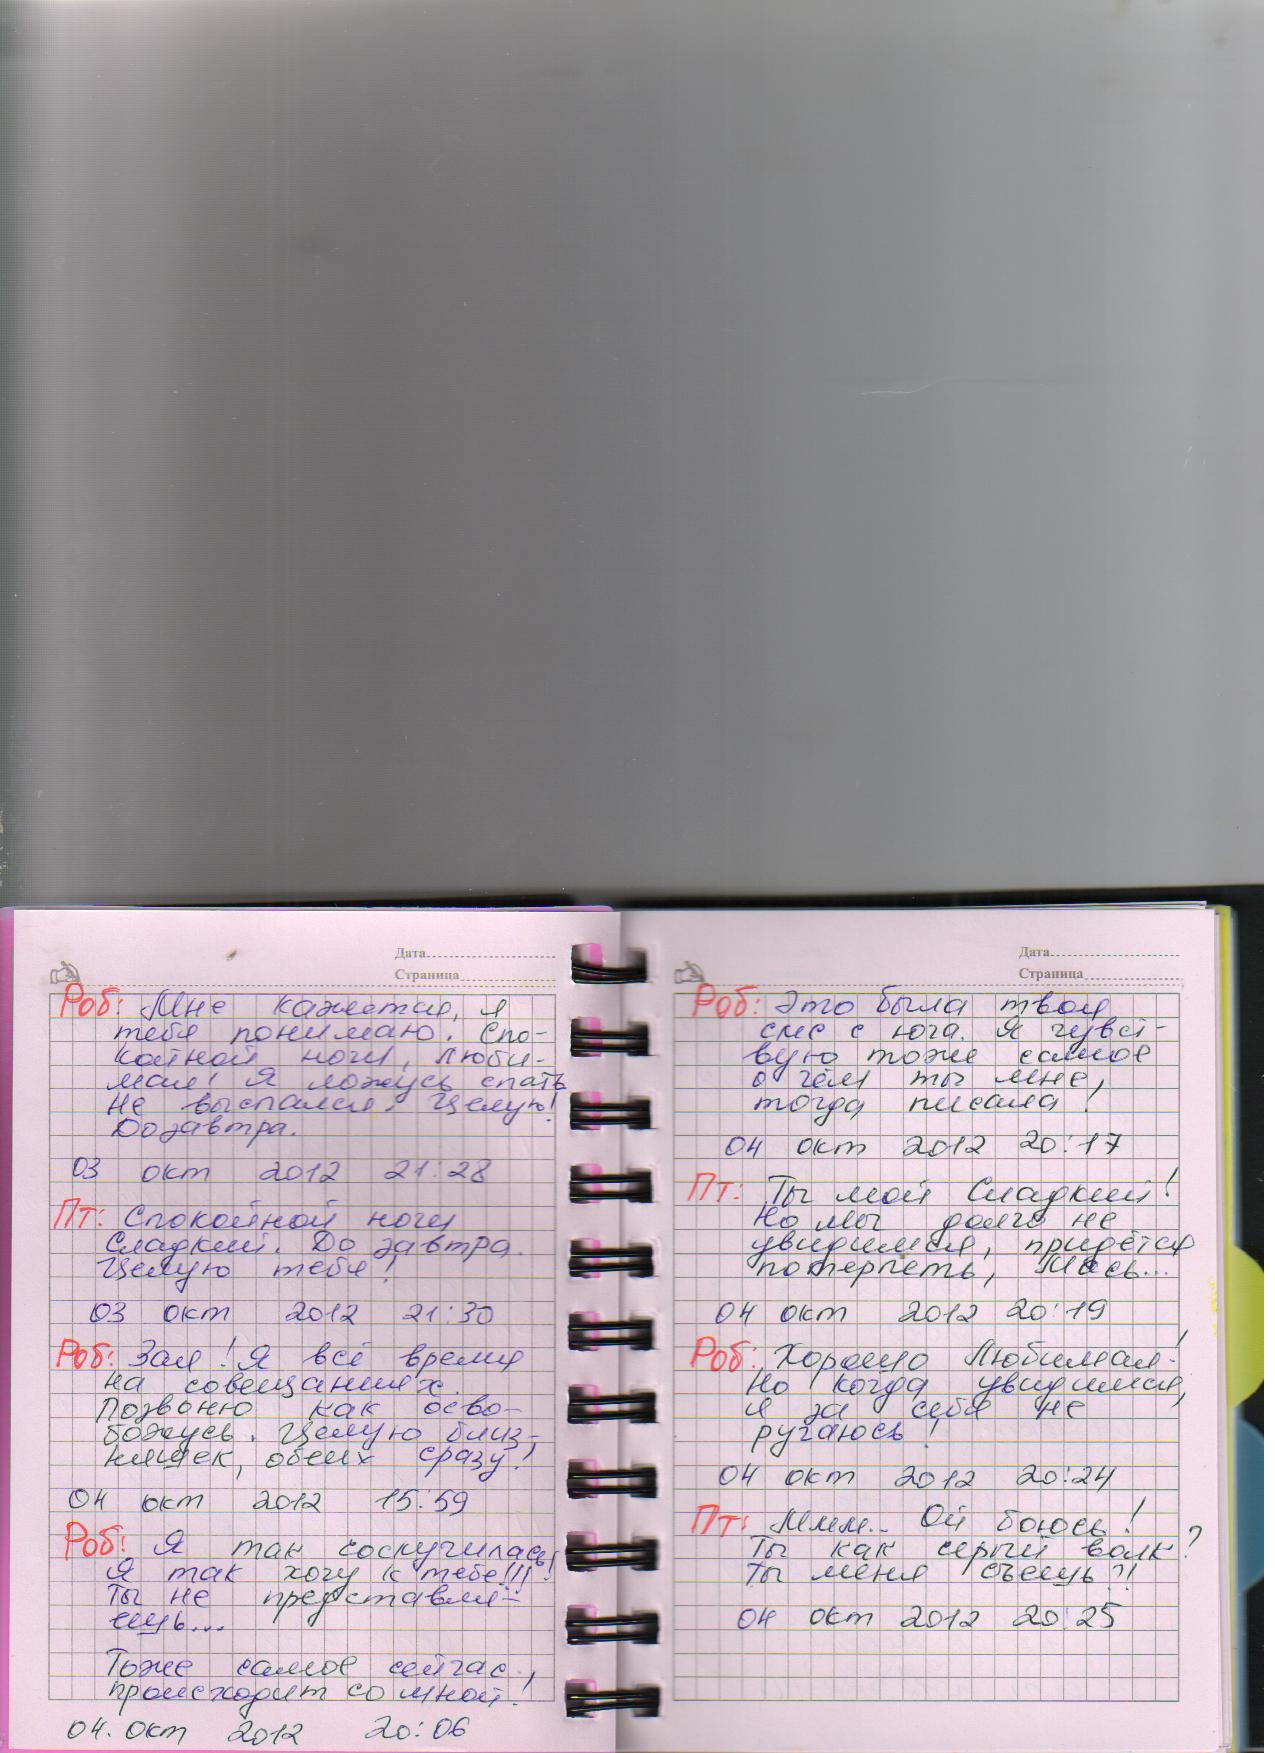 Дата
Страница
Роб: Мне кажется, я
тебя понимаю. Спо-
койной ночи, люби-
мая! Я ложусь спать
не выспался. Целую!
До завтра.
03 окт 2012 21:28
Пт: Спокойной ночи
Сладкий. До завтра.
Целую тебя!
03 окт 2012 21:30
Роб: Зая! Я всё время
на совещаниях.
Позвоню как осво-
божусь. Целую близ-
няшек, обеих сразу!
04 окт 2012 15:59
Роб: Я так соскучилась!
Я так хочу к тебе!!!
Ты не представля-
ешь...
Тоже самое сейчас
происходит со мной!
04. окт 2012 20:06
Дата
Страница
Роб: Это была твоя
смс с юга. Я чувст-
вую тоже самое
о чём ты мне,
тогда писала!
04 окт 2012 20:17
Пт: Ты мой Сладкий!
Но мы долго не
увидимся, придётся
потерпеть, Мась...
04 окт 2012 20:19
Роб: Хорошо Любимая!
Но когда увидимся,
я за себя не
ругаюсь!
04 окт 2012 20:24
Пт: Ммм.. Ой боюсь!
Ты как серый волк?
Ты меня съешь?!
04 окт 2012 20:25